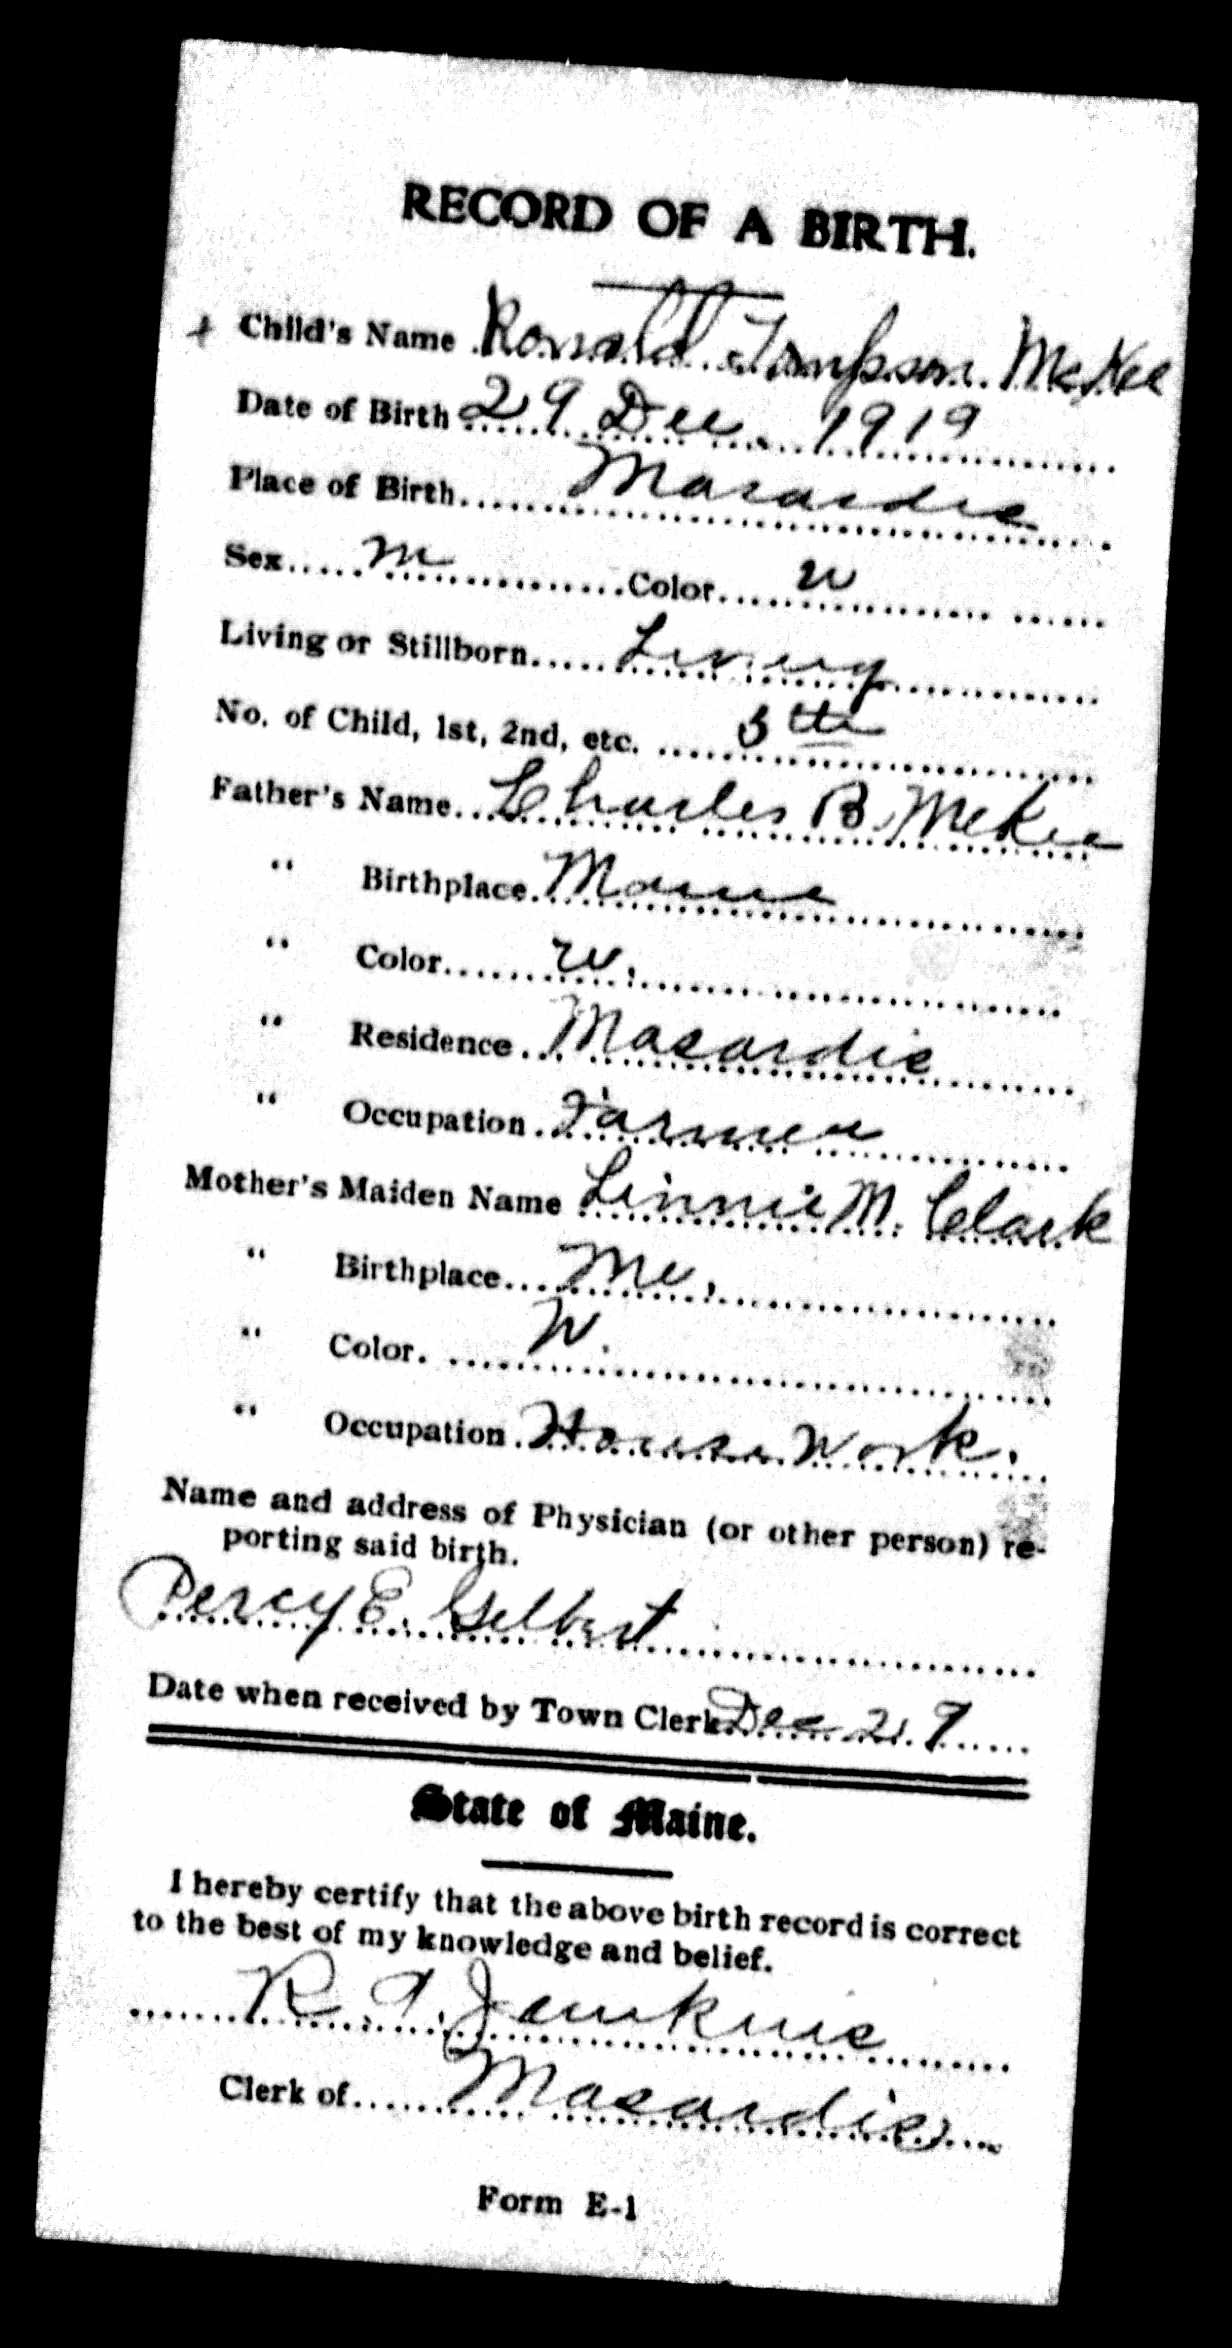 RECORD OF A BIRTH.
Child's Name Ronald Timpson McKee
Date of Birth 29 Dec. 1919
Place of Birth Masardis
Sex m Color w
Living or Stillborn Living
No. of Child, 1st, 2nd, etc. 5th
Father's Name Charles B. McKee
" Birthplace Maine
" Color w.
" Residence Masardis
" Occupation Farmer
Mother's Maiden Name Linnie M. Clark
" Birthplace Me.
" Color W.
" Occupation House Work.
Name and address of Physician (or other person) re-
porting said birth.
Percy E. Gilbert
Date when received by Town Clerk Dec 29
State of Maine.
I hereby certify that the above birth record is correct
to the best of my knowledge and belief.
R. T. Jenkins
Clerk of Masardis
Form E-1